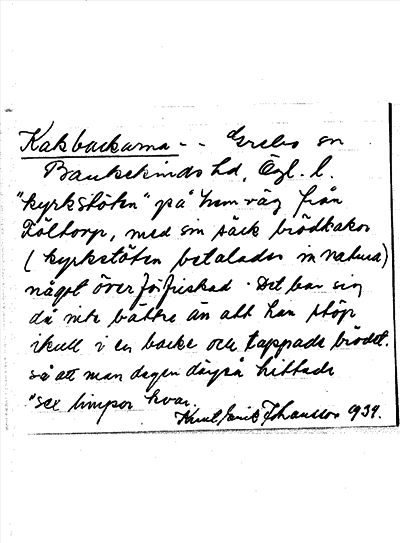 Kakbackarna - - Grebo sn
Bankekinds hd, Ögl. l.
"kyrkstöten" på hemväg från
Föltorp, med sin säck brödkakor
(kyrkstöten betalades in natura)
något överförfriskad. Det bar sig
då inte bättre än att han stöp
ikull i en backe och tappade brödet.
så att man dagen därpå hittade
"sex limpor kvar.
Knut Erik Johansson 1934.